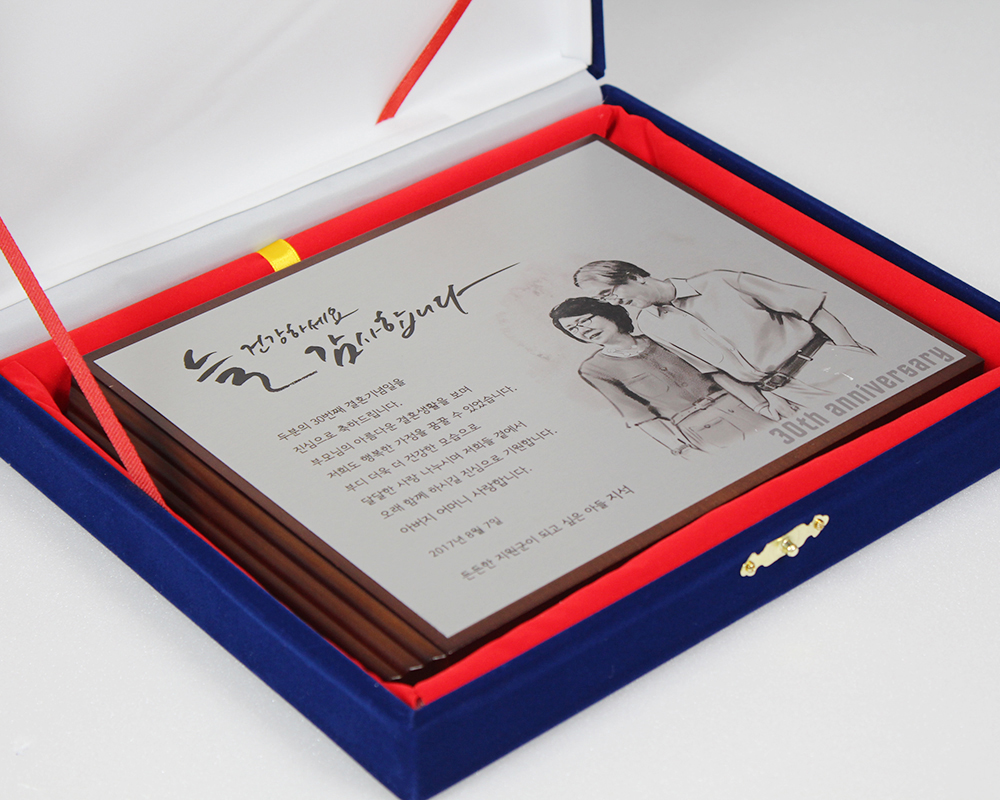 늘 건강하세요
감사합니다
두분의 30번째 결혼기념일을
진심으로 축하드립니다.
부모님의 아름다운 결혼생활을 보며
저희도 행복한 가정을 꿈꿀 수 있었습니다.
부디 더욱 더 건강한 모습으로
달달한 사랑 나누시며 저희들 곁에서
오래 함께 하시길 진심으로 기원합니다.
아버지 어머니 사랑합니다.
2017년 8월 7일
든든한 지원군이 되고 싶은 아들 지석
30th anniversary